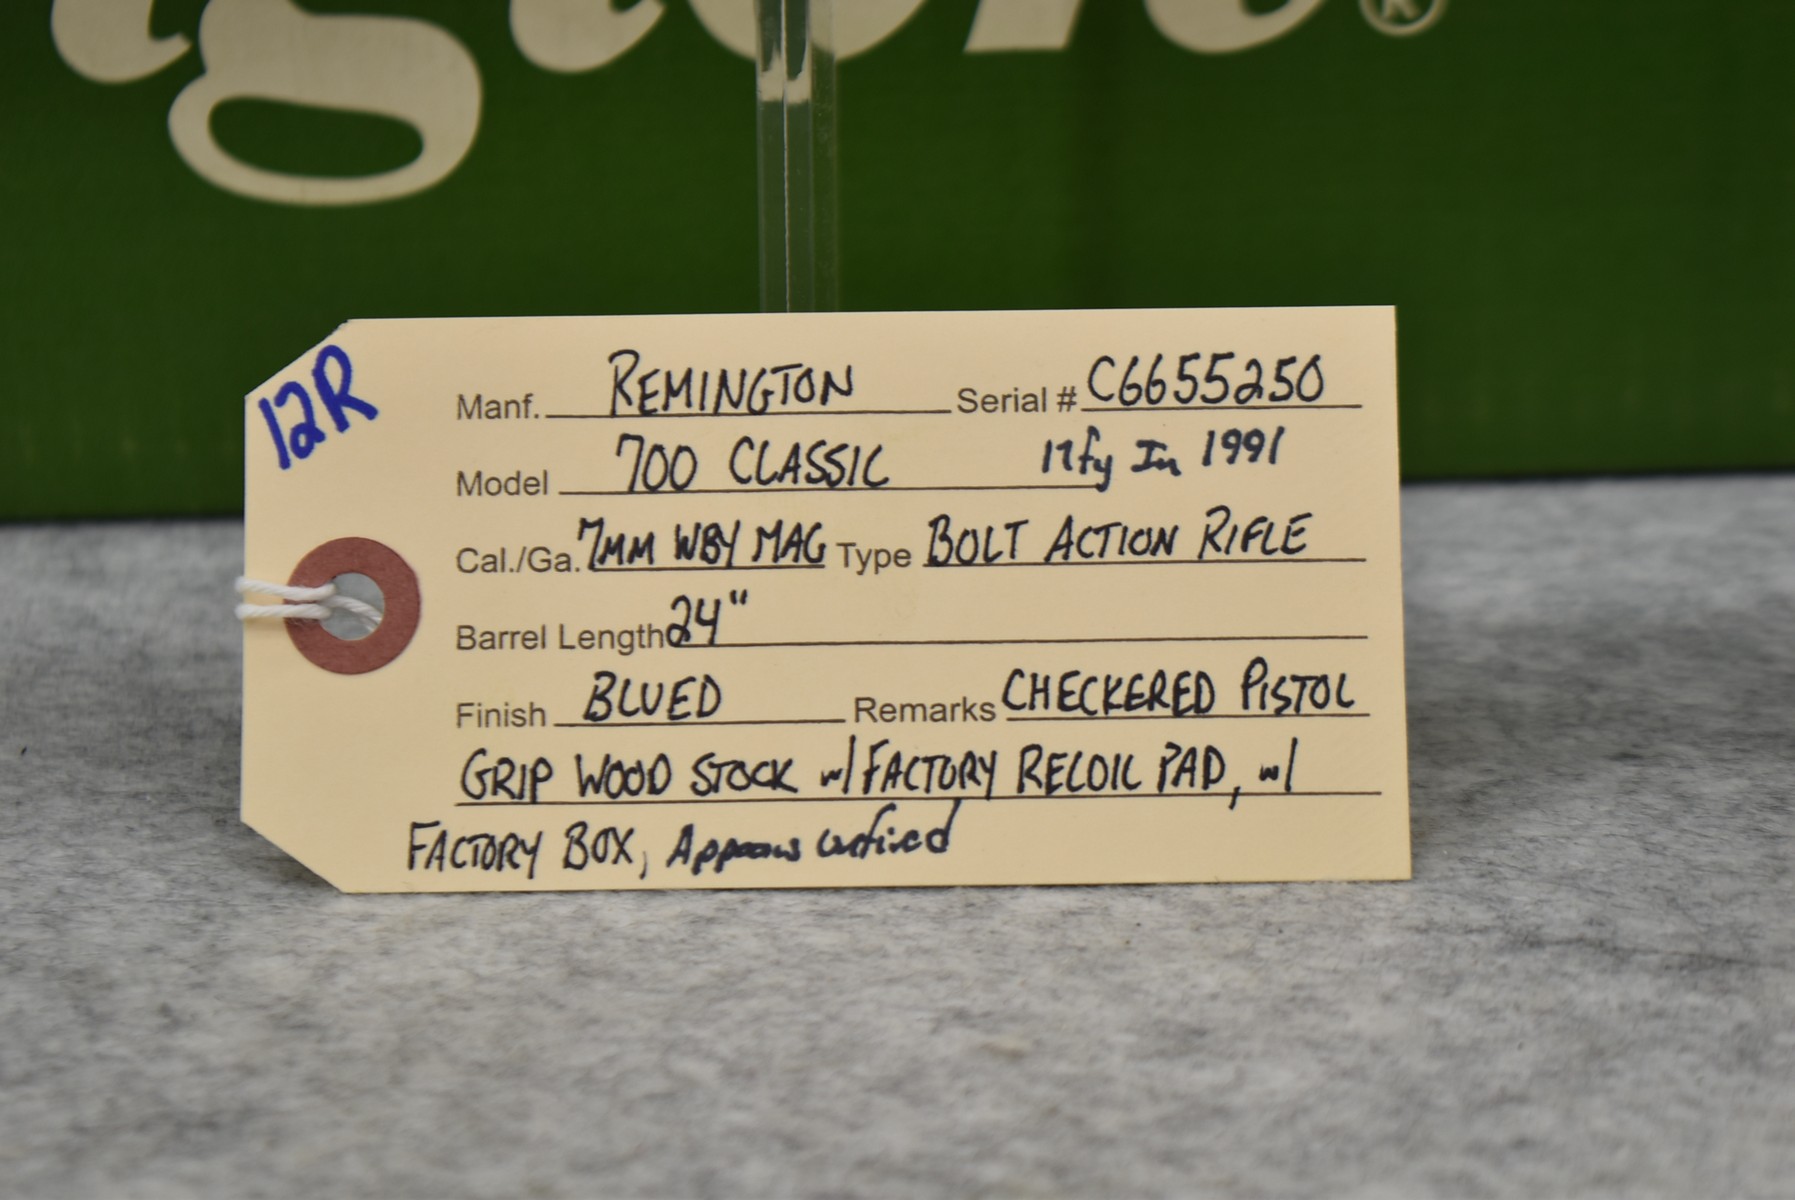 gton®
12R
Manf. REMINGTON Serial # C6655250
Model 700 CLASSIC Mfy In 1991
Cal./Ga. 7MM WBY MAG Type BOLT ACTION RIFLE
Barrel Length 24"
Finish BLUED Remarks CHECKERED PISTOL
GRIP WOOD STOCK w/ FACTORY RECOIL PAD, w/
FACTORY BOX, Appears unfired